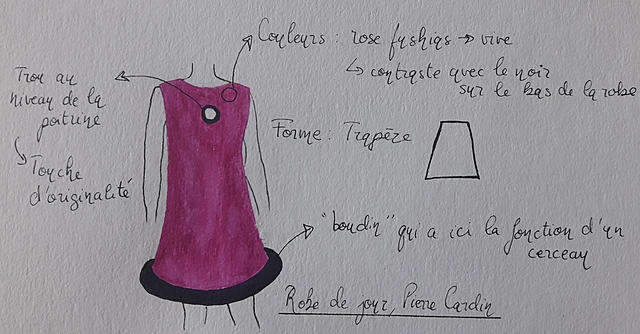 Couleurs : rose fushias → vive
↳ contraste avec le noir
sur le bas de la robe
Trou au
niveau de la
poitrine
↳ Touche
d'originalité
Forme : Trapèze
"boudin" qui a ici la fonction d'un
cerceau
Robe de jour, Pierre Cardin